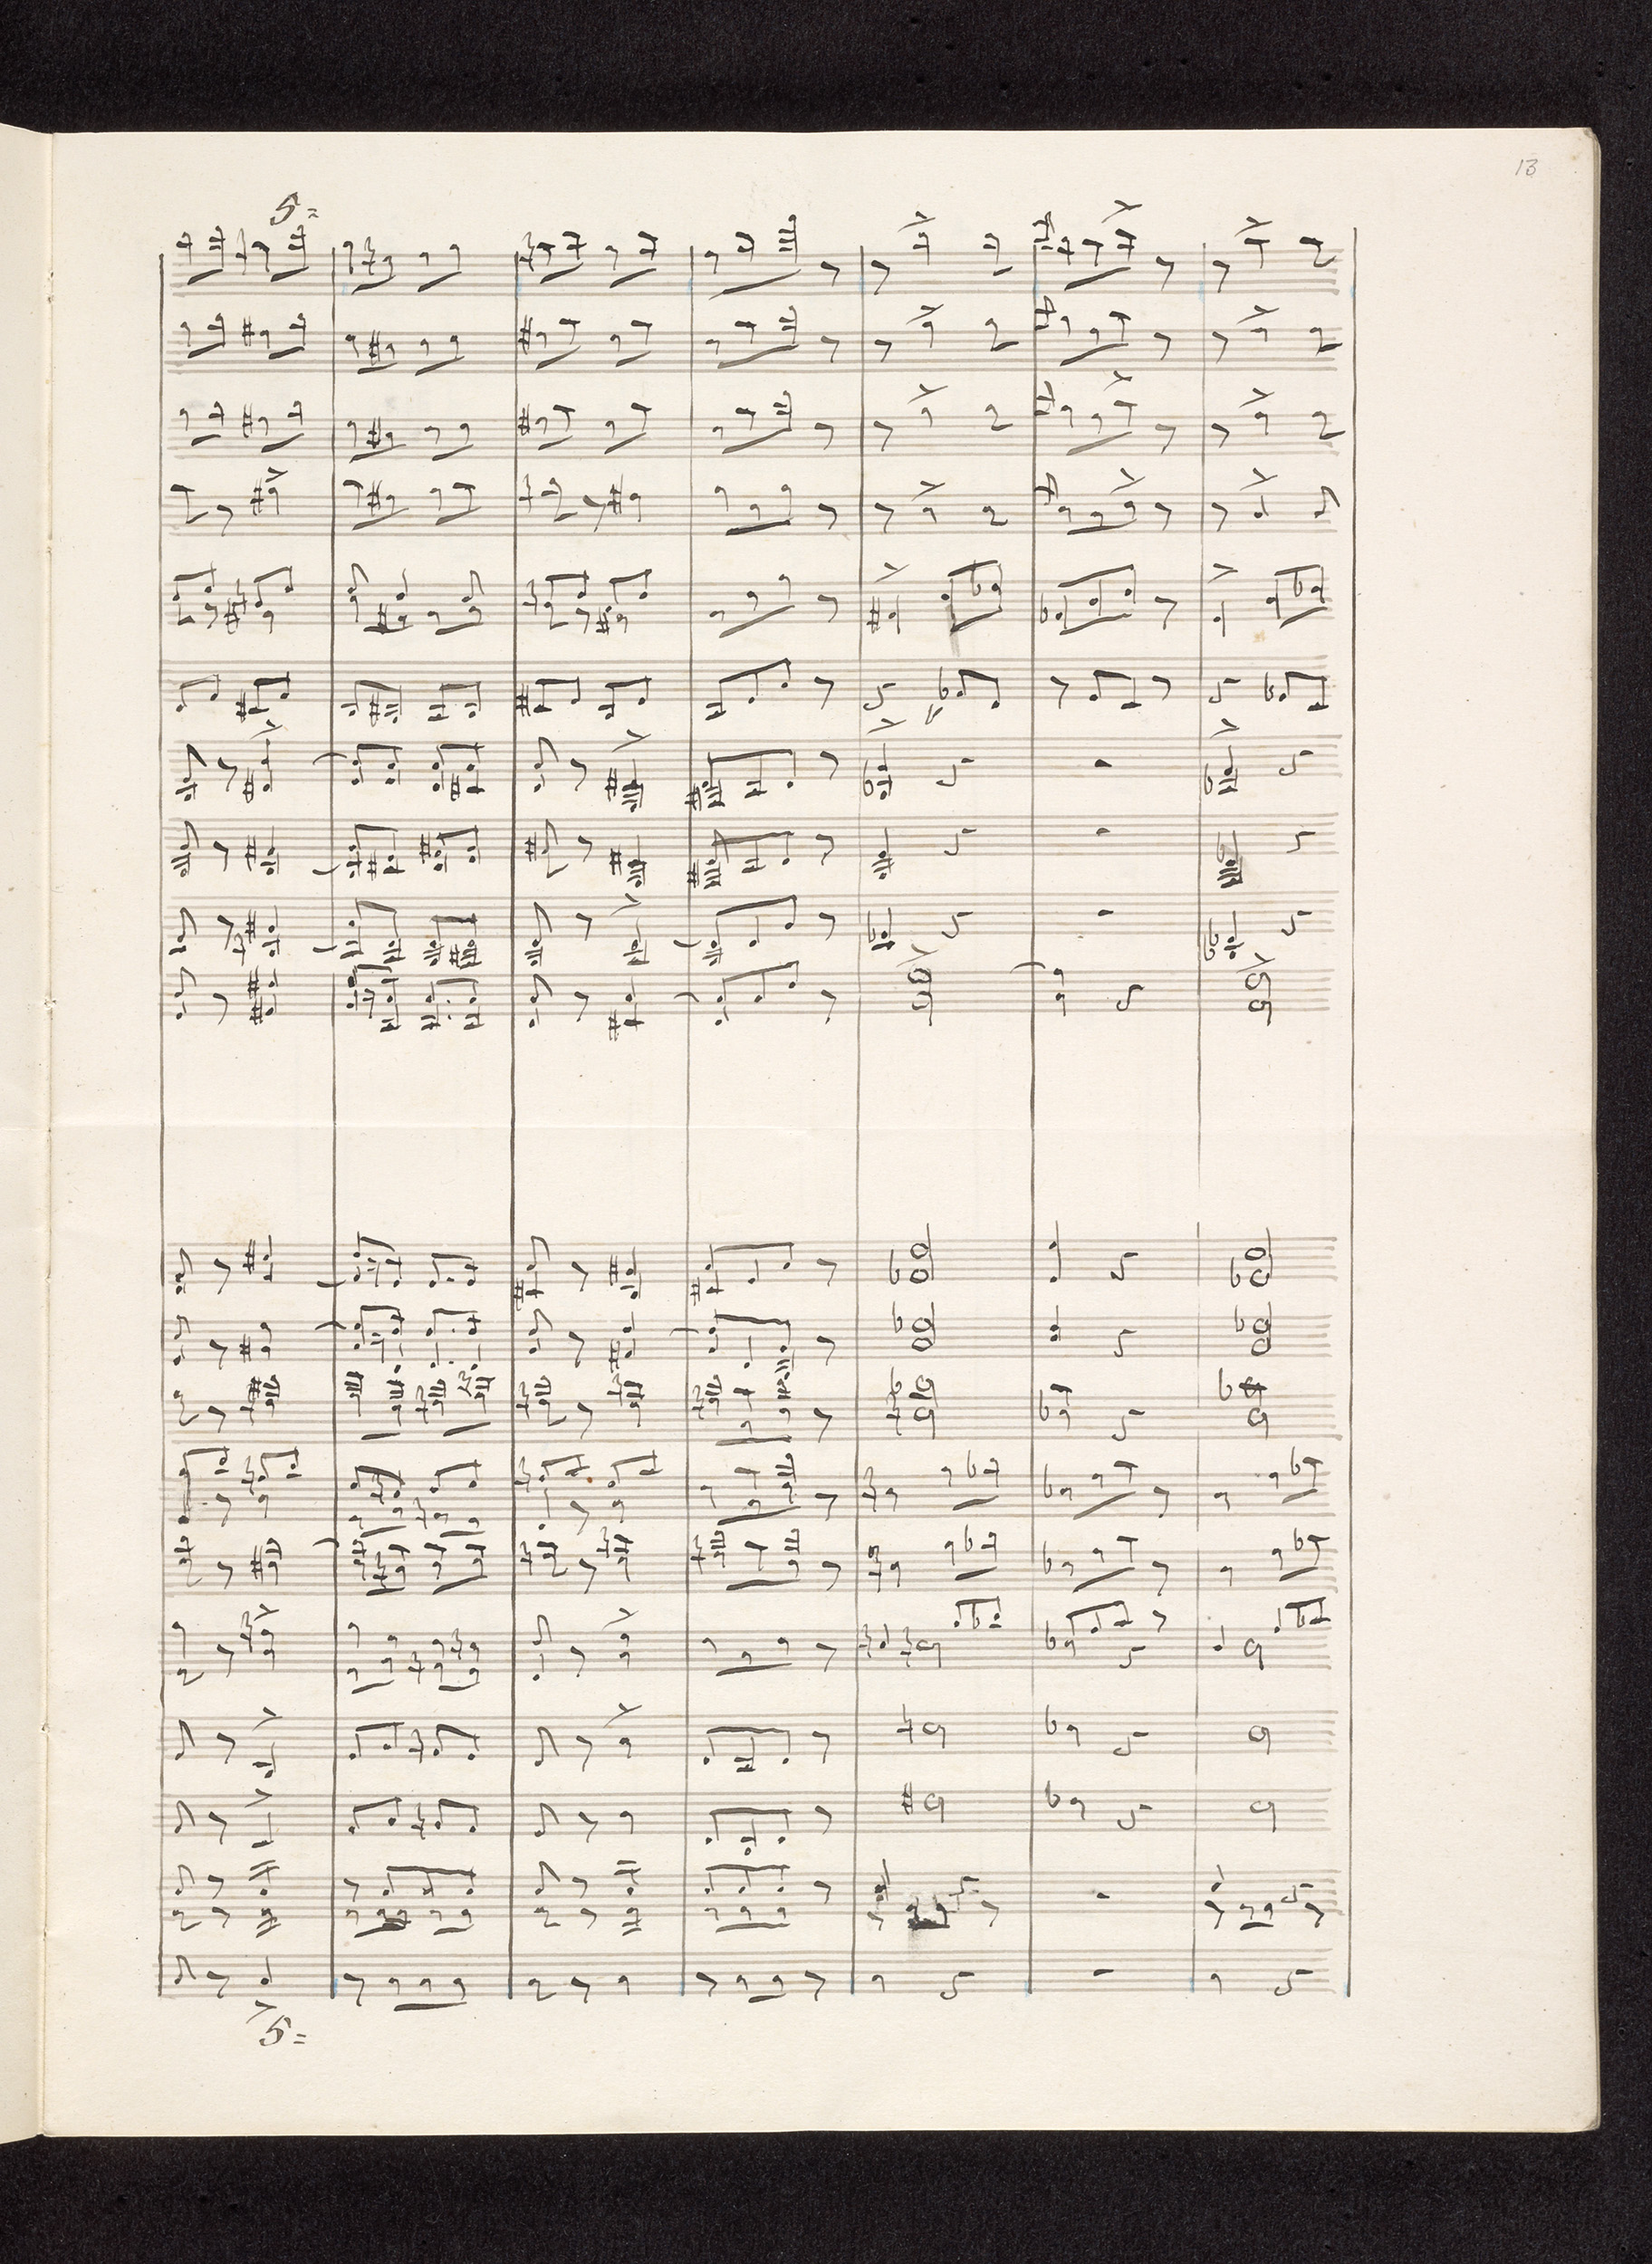 13
5=
5=